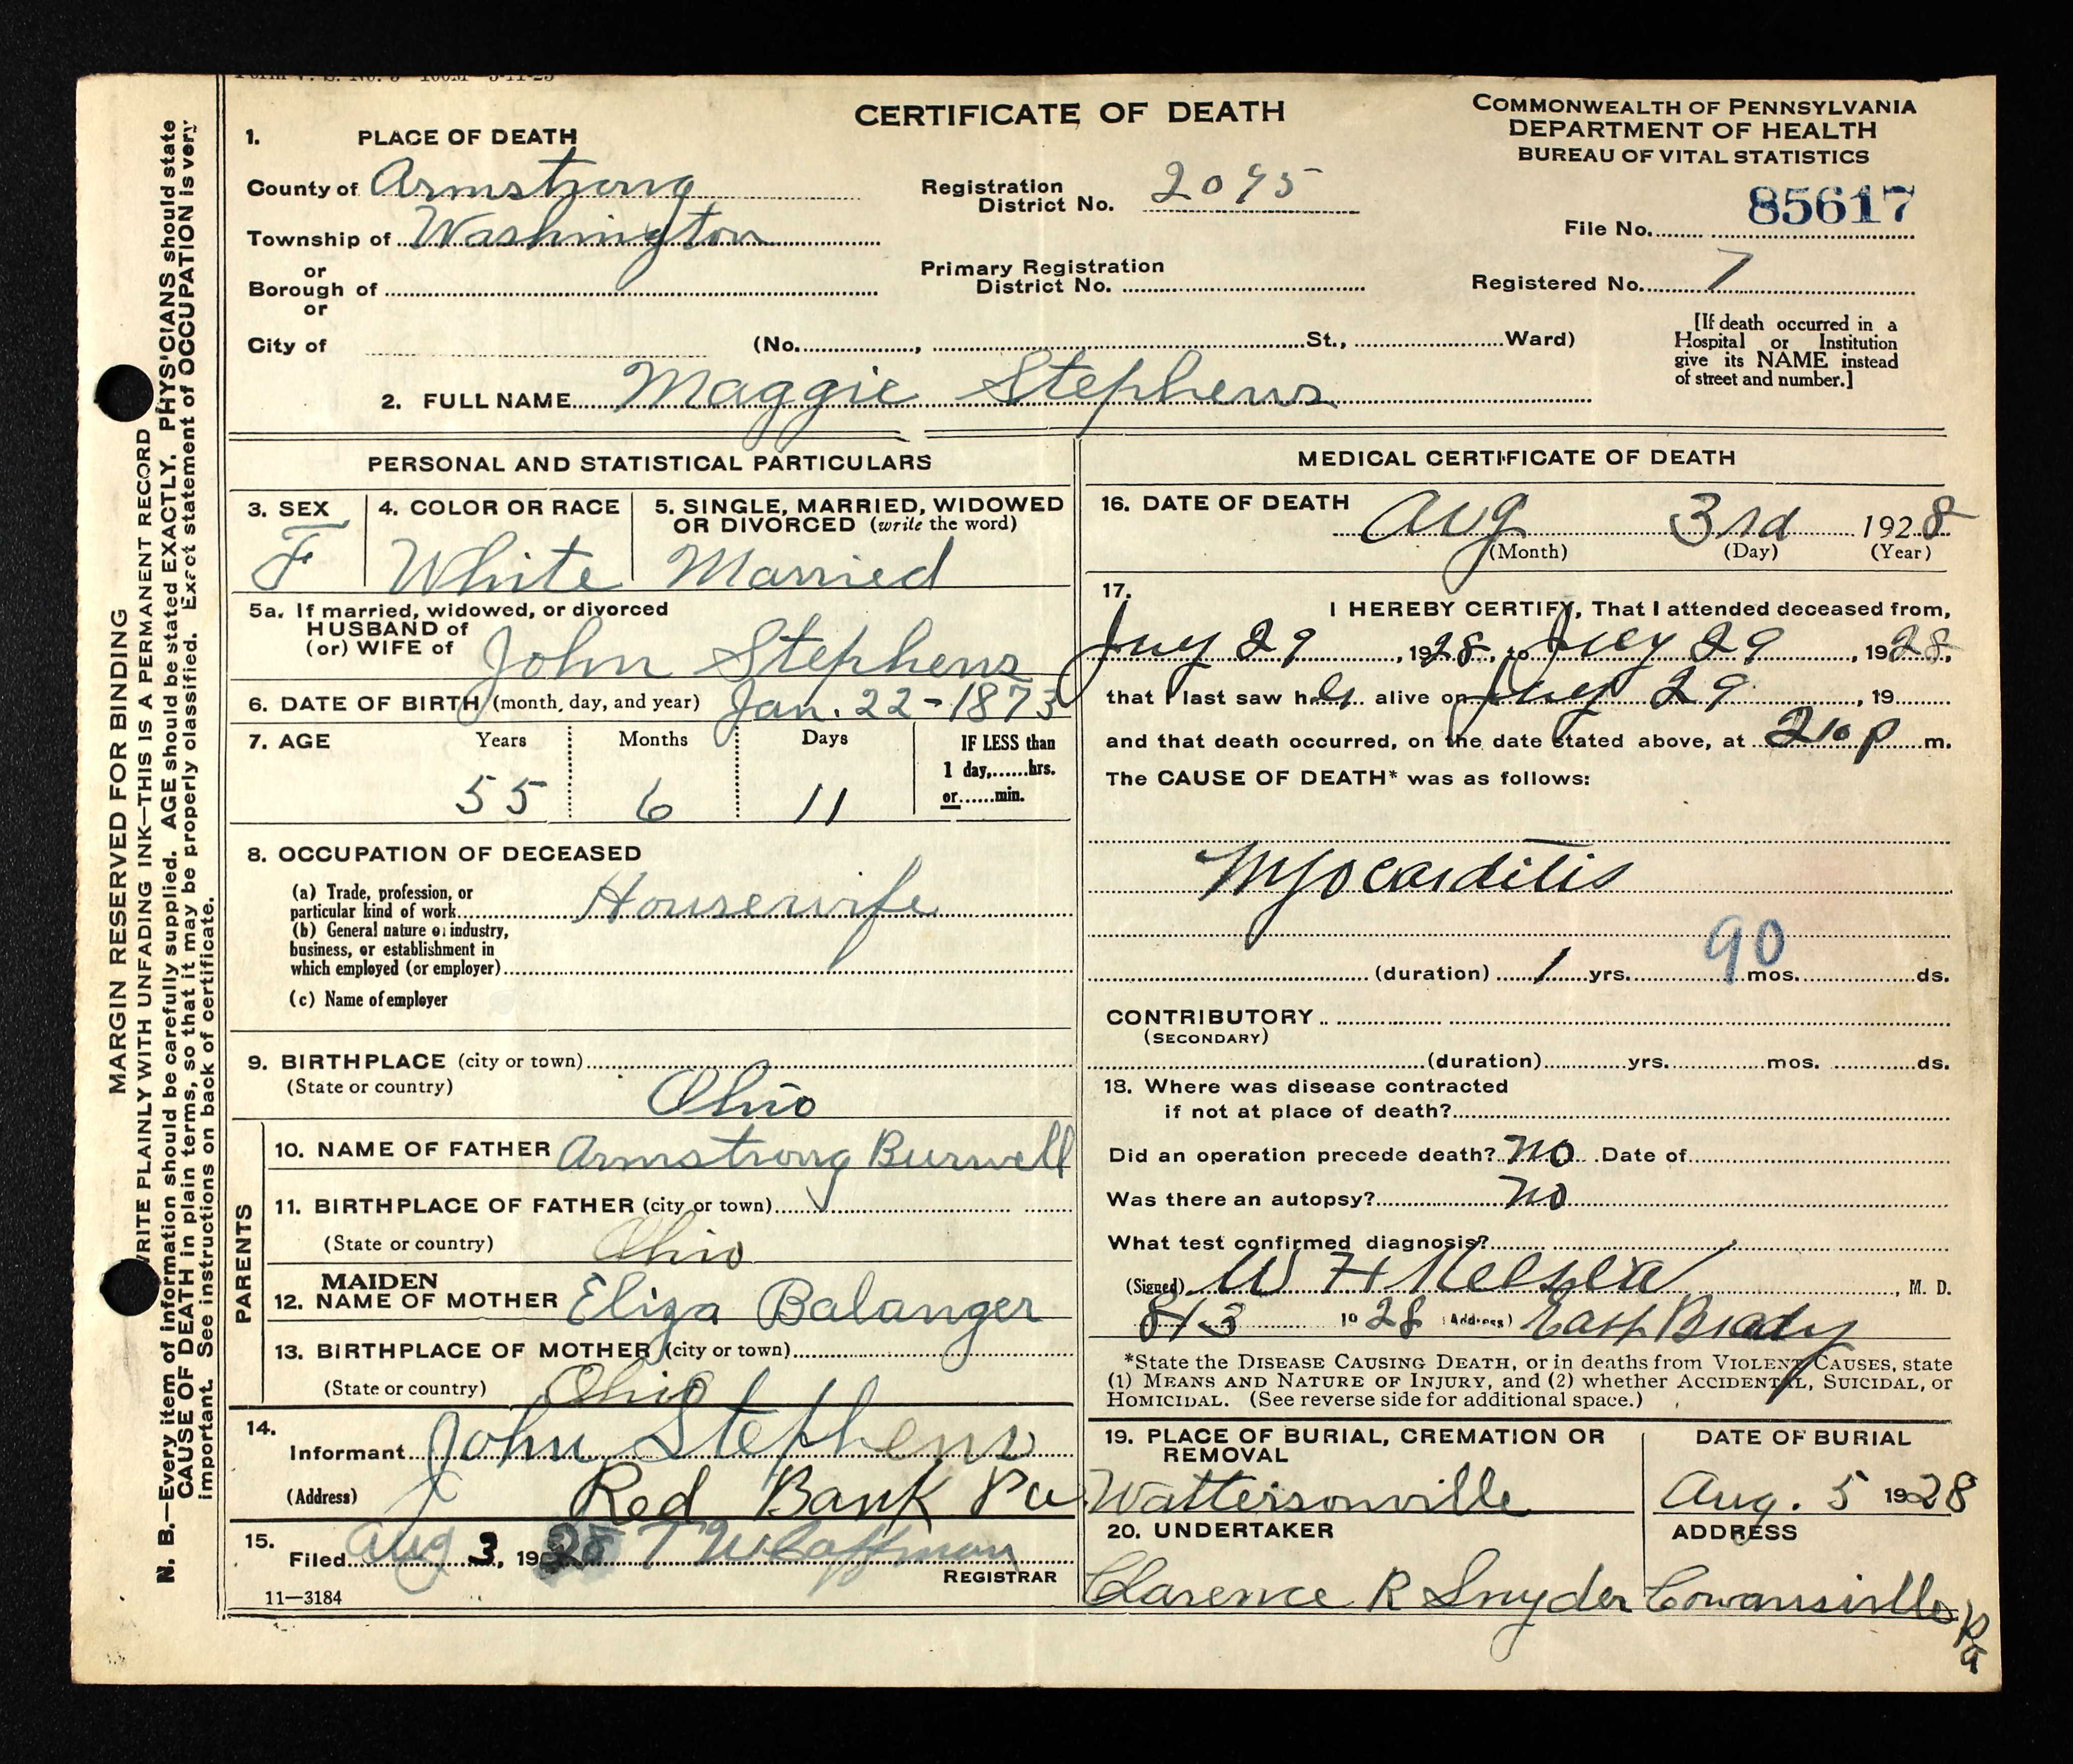 CERTIFICATE OF DEATH
COMMONWEALTH OF PENNSYLVANIA
DEPARTMENT OF HEALTH
BUREAU OF VITAL STATISTICS
1. PLACE OF DEATH
County of Armstrong
Registration District No. 2095
File No. 85617
Township of Washington
or
Borough of
Primary Registration District No.
Registered No. 7
or
City of (No. , St., Ward)
[If death occurred in a
Hospital or Institution
give its NAME instead
of street and number.]
2. FULL NAME Maggie Stephens
PERSONAL AND STATISTICAL PARTICULARS
3. SEX
F
4. COLOR OR RACE
White
5. SINGLE, MARRIED, WIDOWED
OR DIVORCED (write the word)
Married
5a. If married, widowed, or divorced
HUSBAND of
(or) WIFE of John Stephens
6. DATE OF BIRTH (month, day, and year) Jan. 22-1873
7. AGE Years Months Days
55 6 11
IF LESS than
1 day,......hrs.
or......min.
8. OCCUPATION OF DECEASED
(a) Trade, profession, or
particular kind of work Housewife
(b) General nature of industry,
business, or establishment in
which employed (or employer)
(c) Name of employer
9. BIRTHPLACE (city or town)
(State or country) Ohio
PARENTS
10. NAME OF FATHER Armstrong Burwell
11. BIRTHPLACE OF FATHER (city or town)
(State or country) Ohio
12. MAIDEN NAME OF MOTHER Eliza Balanger
13. BIRTHPLACE OF MOTHER (city or town)
(State or country) Ohio
14.
Informant John Stephens
(Address) Red Bank Pa
15.
Filed Aug 3, 1928
REGISTRAR
11—3184
MEDICAL CERTIFICATE OF DEATH
16. DATE OF DEATH
Aug 3rd 1928
(Month) (Day) (Year)
17.
I HEREBY CERTIFY, That I attended deceased from,
July 29, 1928, to July 29, 1928,
that I last saw her alive on July 29, 19
and that death occurred, on the date stated above, at 210 p m.
The CAUSE OF DEATH* was as follows:
Myocarditis
90
(duration) 1 yrs. mos. ds.
CONTRIBUTORY
(SECONDARY)
(duration) yrs. mos. ds.
18. Where was disease contracted
if not at place of death?
Did an operation precede death? No Date of
Was there an autopsy? No
What test confirmed diagnosis?
(Signed) W H , M. D.
8/3 1928 (Address) East Brady
*State the DISEASE CAUSING DEATH, or in deaths from VIOLENT CAUSES, state
(1) MEANS AND NATURE OF INJURY, and (2) whether ACCIDENTAL, SUICIDAL, or
HOMICIDAL. (See reverse side for additional space.)
19. PLACE OF BURIAL, CREMATION OR
REMOVAL
Wattersonville
DATE OF BURIAL
Aug. 5 1928
20. UNDERTAKER
Clarence R Snyder
ADDRESS
Cowansville Pa
MARGIN RESERVED FOR BINDING
WRITE PLAINLY WITH UNFADING INK—THIS IS A PERMANENT RECORD
N. B.—Every item of information should be carefully supplied. AGE should be stated EXACTLY. PHYSICIANS should state
CAUSE OF DEATH in plain terms, so that it may be properly classified. Exact statement of OCCUPATION is very
important. See instructions on back of certificate.